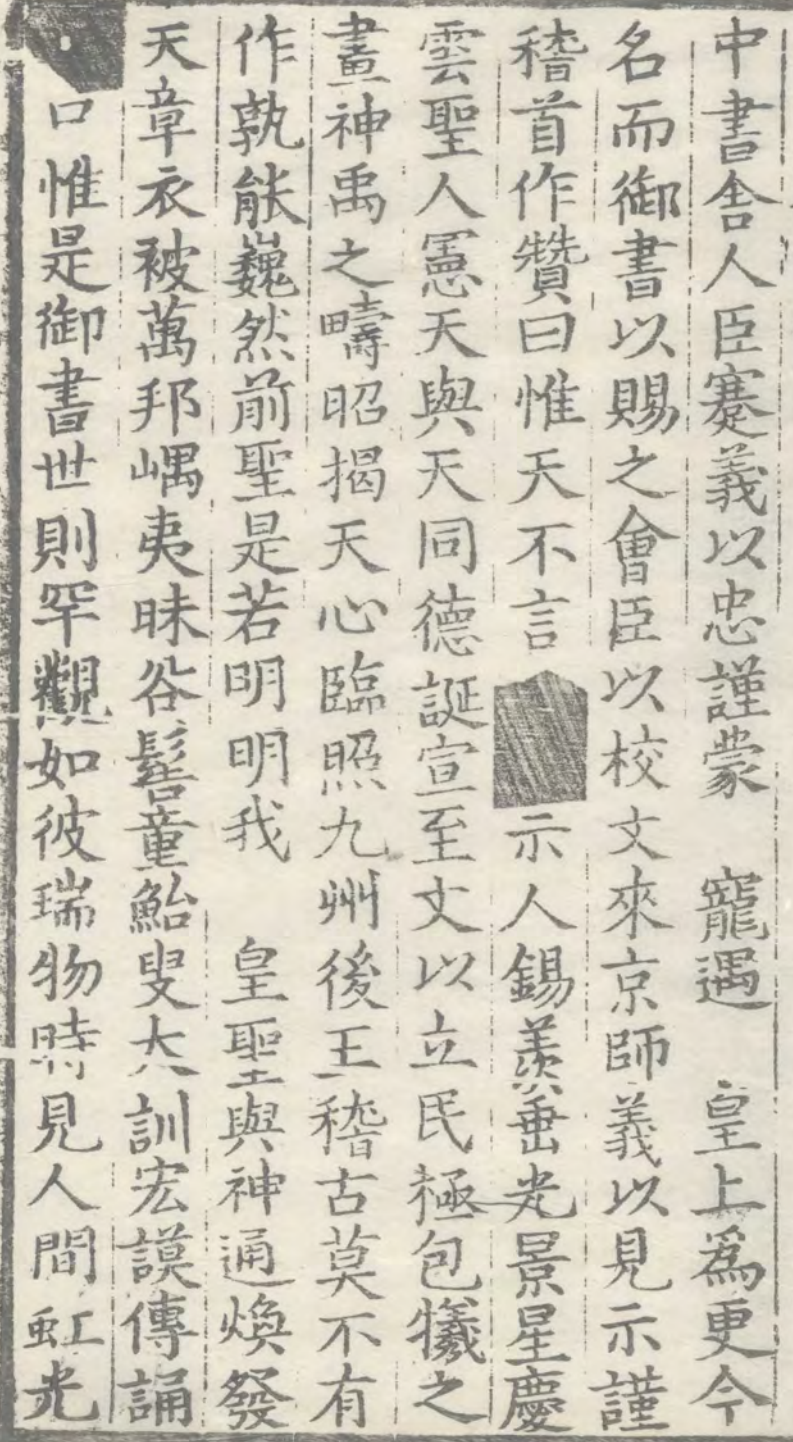 中書舍人臣蹇義以忠謹蒙 寵遇 皇上爲更今
名而御書以賜之會臣以校文來京師義以見示謹
稽首作贊曰惟天不言 示人錫羨垂光景星慶
雲聖人憲天與天同德誕宣至文以立民極包犧之
畫神禹之疇昭揭天心臨照九州後王稽古莫不有
作孰能巍然前聖是若明明我 皇聖與神通煥發
天章衣被萬邦嵎夷昧谷髫童鮐叟大訓宏謨傳誦
口惟是御書世則罕觀如彼瑞物時見人間虹光